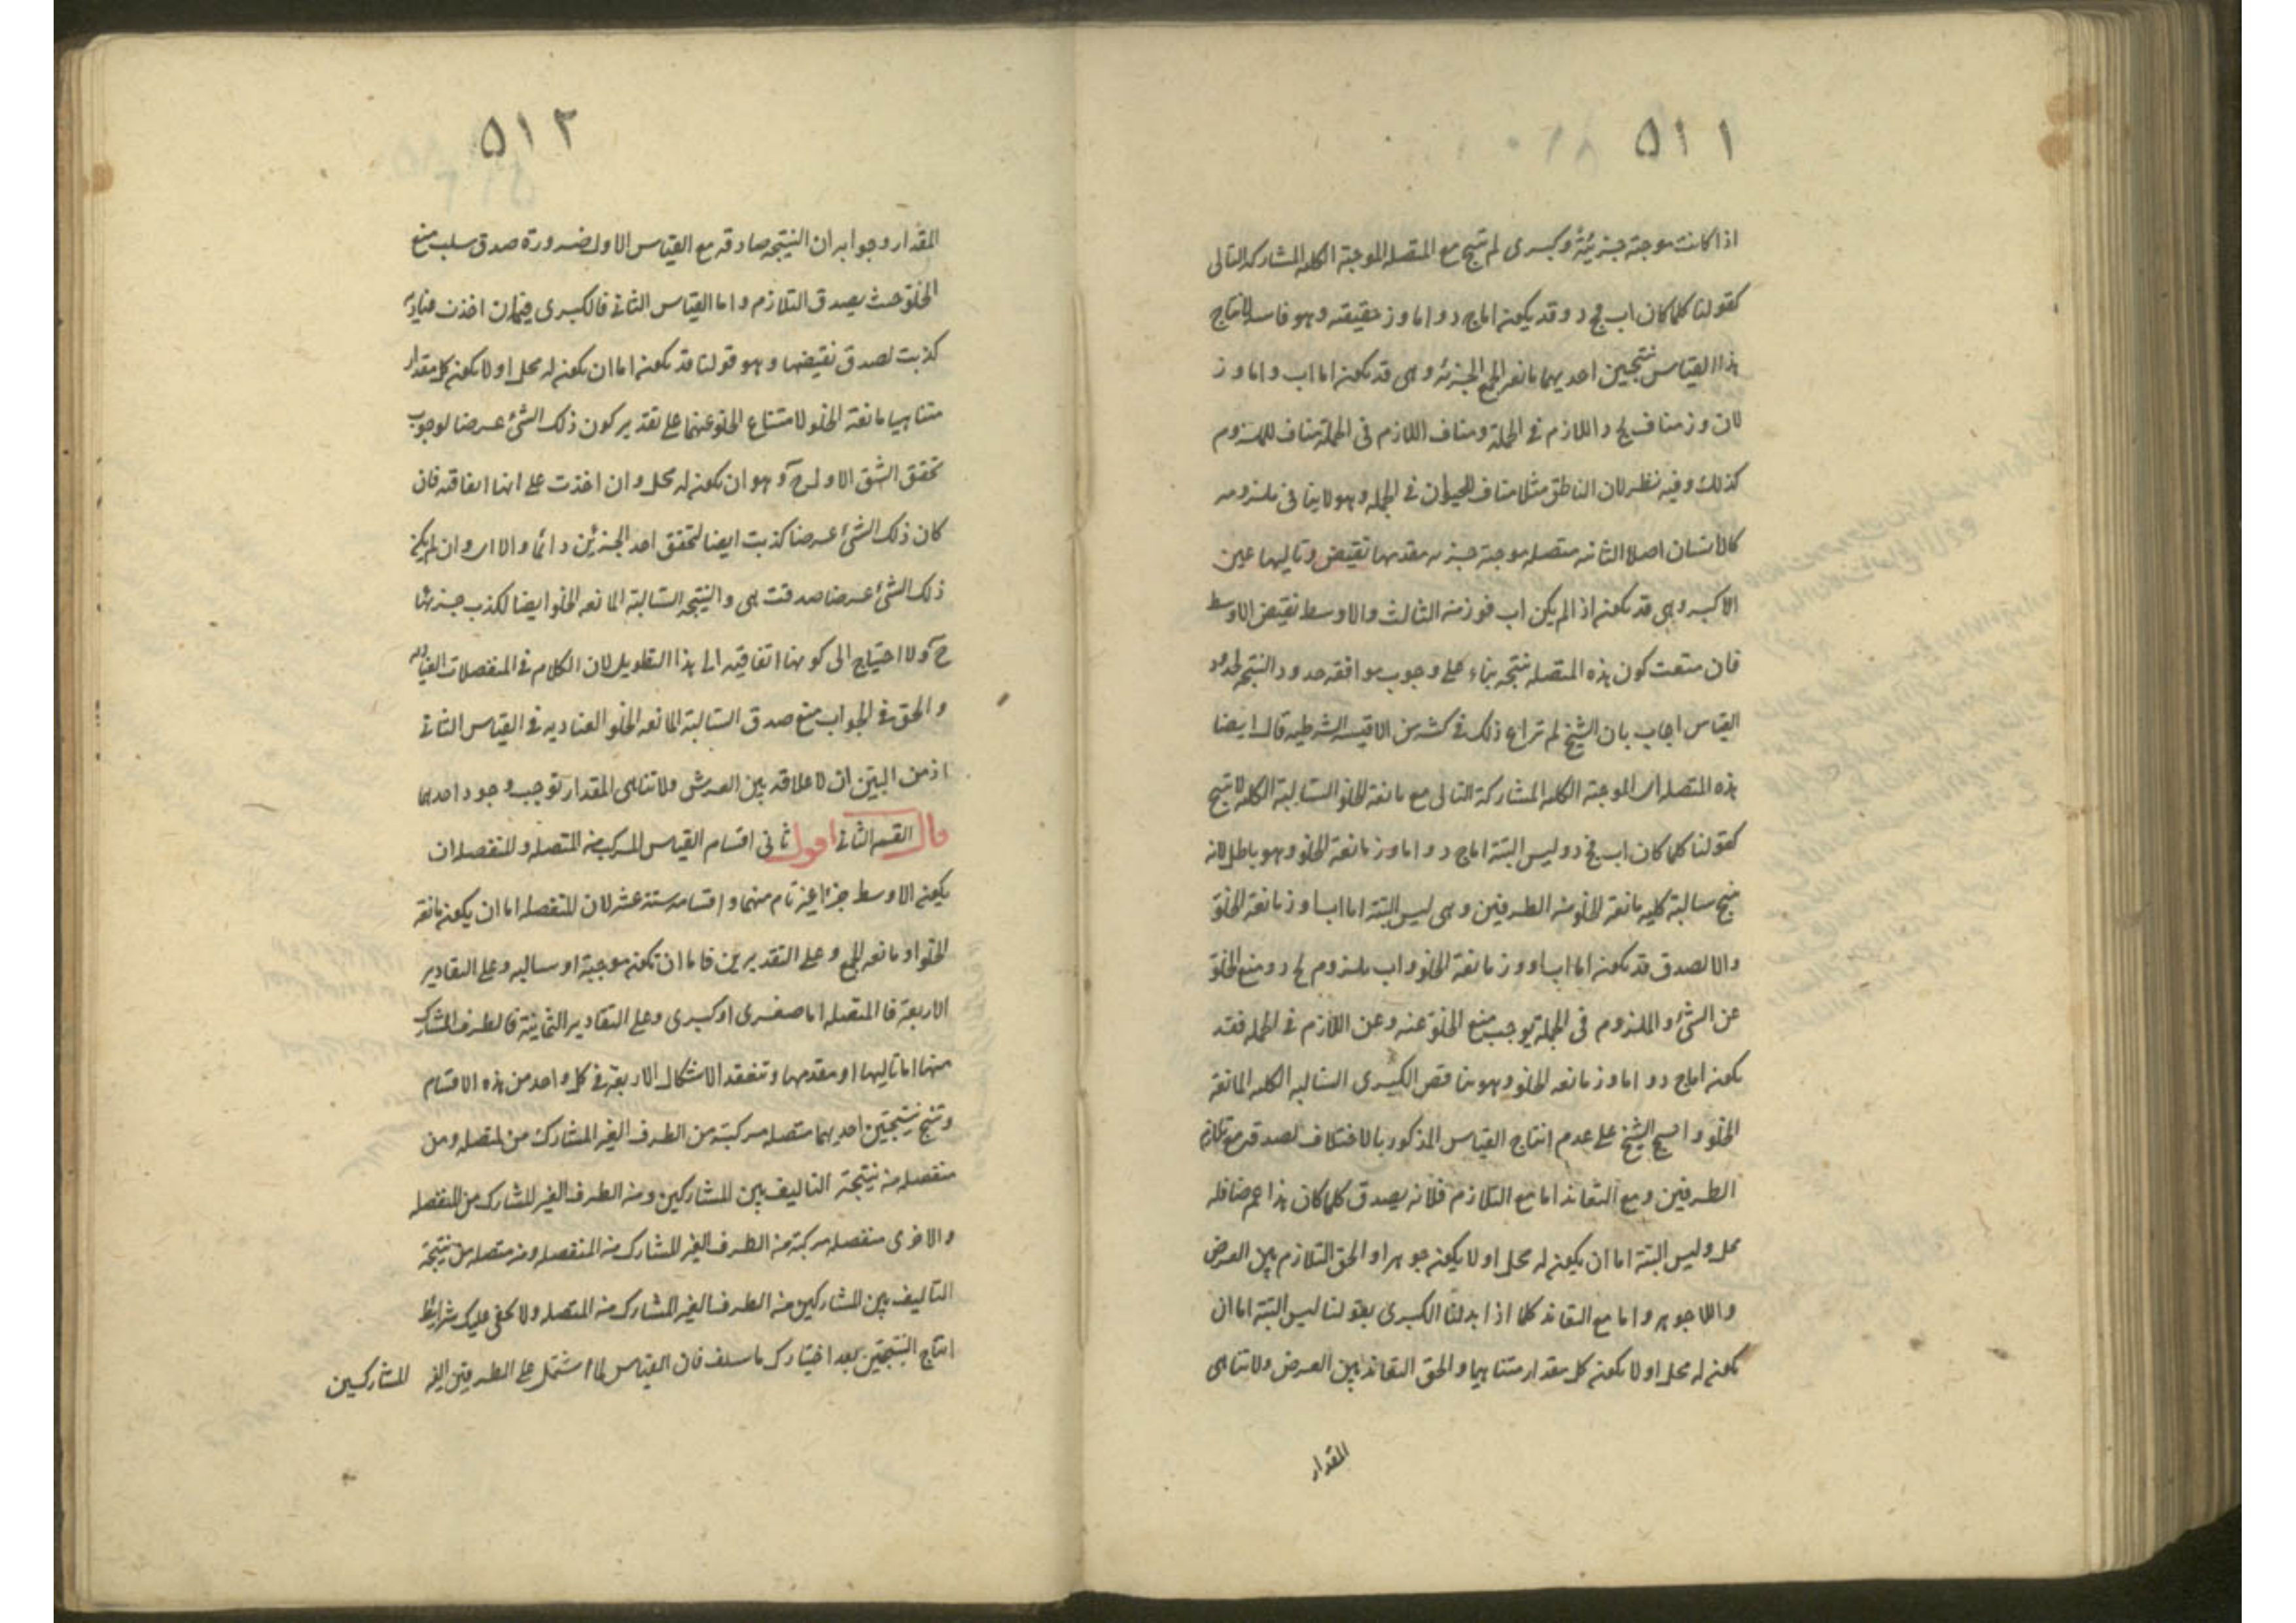 ٥١١
اذا كانت موجبة جزئية وكبرى لم تنتج مع المتصلة الموجبة الكلية المشاركة التالى
كقولنا كلما كان اب فج د وقد يكون اما ج د واما و ز حقيقته وهو فاسد لانتاج
هذا القياس نتيجتين احديهما مانعة الجمع الجزئية وهى قد يكون اما اب واما و ز
لان و ز مناف لج د اللازم فى الجملة ومناف اللازم فى الجملة مناف للملزوم
كذلك وفيه نظر لان الناطق مثلا مناف للحيوان فى الجملة وهو لا ينافى ملزومه
كالانسان اصلا الثانيه متصلة موجبة جزئيه مقدمها نقيض وتاليها عين
الاكبر وهى قد يكون اذا لم يكن اب فو ز من الثالث والاوسط نقيض الاوسط
فان منعت كون هذه المتصلة نتيجه بناء على وجوب موافقه حدود النتيجه لحدود
القياس اجاب بان الشيخ لم يراع ذلك فى كثير من الاقيسة الشرطيه قال ايضا
هذه المتصلة اى الموجبة الكلية المشاركة التالى مع مانعة الخلو السالبة الكلية لا تنتج
كقولنا كلما كان اب فج د وليس البتة اما ج د واما و ز مانعة الخلو وهو باطل لانه
ينتج سالبة كليه مانعة الخلو من الطرفين وهى ليس البتة اما اب او و ز مانعة الخلو
والا لصدق قد يكون اما اب او و ز مانعة الخلو و اب ملزوم لج د ومنع الخلو
عن الشئ والملزوم فى الجملة يوجب منع الخلو عنه وعن اللازم فى الجملة فقد
يكون اما ج د واما و ز مانعه الخلو وهو يناقض الكبرى السالبه الكليه المانعة
الخلو واحتج الشيخ على عدم انتاج القياس المذكور بالاختلاف لصدقه مع تلازم
الطرفين ومع التعاند اما مع التلازم فلانه يصدق كلما كان هذا عرضا فله
محل وليس البتة اما ان يكون له محل او لا يكون جوهرا والحق التلازم بين العرض
واللا جوهر واما مع التعاند كلما اذا بدلنا الكبرى بقولنا ليس البتة اما ان
يكون له محل او لا يكون كل مقدار متناهيا والحق التعاند بين العرض ولا تناهى
المقدار
٥١٢
المقدار وجوابه ان النتيجه صادقه مع القياس الاول ضرورة صدق سلب منع
الخلو حيث يصدق التلازم واما القياس الثانى فالكبرى فيه ان اخذت عناديه
كذبت لصدق نقيضها وهو قولنا قد يكون اما ان يكون له محل او لا يكون كل مقدار
متناهيا مانعة الخلو لامتناع الخلو عنهما على تقدير كون ذلك الشئ عرضا لوجوب
تحقق الشق الاول ح وهو ان يكون له محل وان اخذت على انها اتفاقيه فان
كان ذلك الشئ عرضا كذبت ايضا لتحقق احد الجزئين دائما والا اى وان لم يكن
ذلك الشئ عرضا صدقت هى والنتيجه السالبة المانعه الخلو ايضا لكذب جزئيها
ح ولا احتياج الى كونها اتفاقيه الى هذا التطويل لان الكلام فى المنفصلات العناديه
والحق فى الجواب منع صدق السالبة المانعه الخلو العناديه فى القياس الثانى
اذ من البين ان لا علاقه بين العرض ولا تناهى المقدار توجب وجود احدهما
قال القسم الثانى اقول ثانى اقسام القياس المركب من المتصله والمنفصله ان
يكون الاوسط جزءا غير تام منهما واقسامه ستة عشر لان المنفصله اما ان يكون مانعة
الخلو او مانعه الجمع وعلى التقديرين فاما ان تكون موجبة او سالبه وعلى التقادير
الاربعة فالمتصله اما صغرى او كبرى وعلى التقادير الثمانية فالطرف المشارك
منها اما تاليها او مقدمها وتنعقد الاشكال الاربعة فى كل واحد من هذه الاقسام
وتنتج نتيجتين احديهما متصله مركبة من الطرف الغير المشارك من المتصله ومن
منفصله من نتيجة التاليف بين المشاركين ومن الطرف الغير المشارك من المنفصله
والاخرى منفصله مركبة من الطرف الغير المشارك من المنفصله ومن متصله من نتيجة
التاليف بين المشاركين من الطرف الغير المشارك من المتصله ولا يخفى عليك شرايط
انتاج النتيجتين بعد اختيارك ما سلف فان القياس لما اشتمل على الطرفين الغير المشاركين